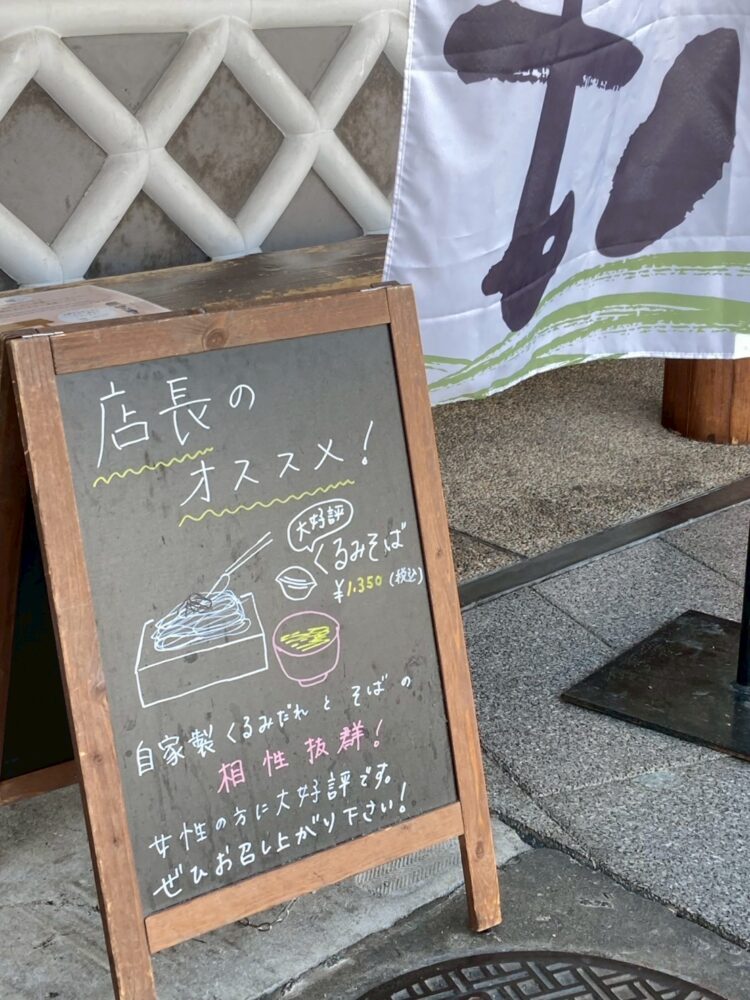 店長の
オススメ!
大好評
くるみそば
¥1.350(税込)
自家製くるみだれとそばの
相性抜群!
女性の方に大好評です。
ぜひお召し上がり下さい!